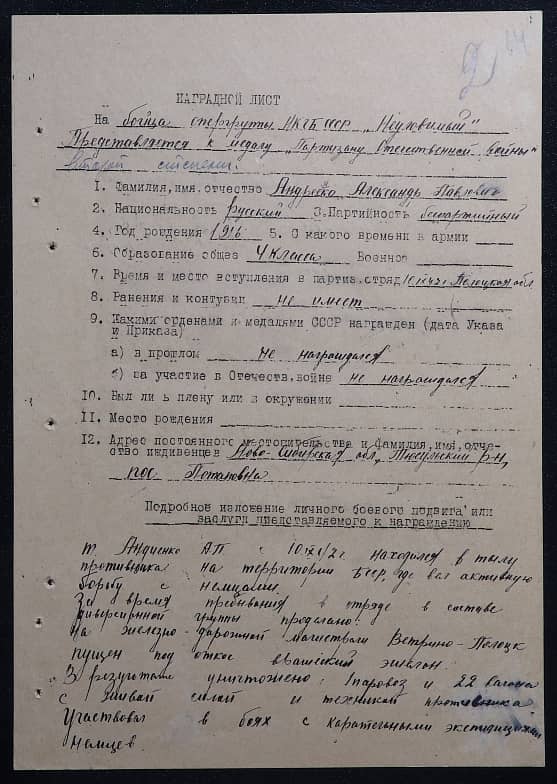 14
НАГРАДНОЙ ЛИСТ
На бойца опергруппы НКГБ БССР „Неуловимый"
Представляется к медали „Партизану Отечественной войны"
второй степени.
1. Фамилия, имя, отчество Александр Павлович
2. Национальность русский 3. Партийность беспартийный
4. Год рождения 1916 5. С какого времени в армии
6. Образование общее 4 класса Военное
7. Время и место вступления в партиз. отряд Полоцкая обл
8. Ранения и контузии не имеет
9. Какими орденами и медалями СССР награжден (дата Указа
и Приказа)
а) в прошлом не награждался
б) за участие в Отечеств. войне не награждался
10. Был ли в плену или в окружении
11. Место рождения
12. Адрес постоянного местожительства и фамилия, имя, отче-
ство иждивенцев Ново-Сибирская обл, р-н,
пос
Подробное изложение личного боевого подвига или
заслуги представляемого к награждению
т. Андиенко АП с находился в тылу
противника на территории БССР, где вел активную
борьбу с немцами.
За время пребывания в отряде в составе
диверсионной группы проделано:
На железно-дорожной магистрали Ветрино-Полоцк
пущен под откос вражеский эшелон.
В результате уничтожено: 1 паровоз и 22 вагона
с живой силой и техникой противника.
Участвовал в боях с карательными экспедициями
немцев.